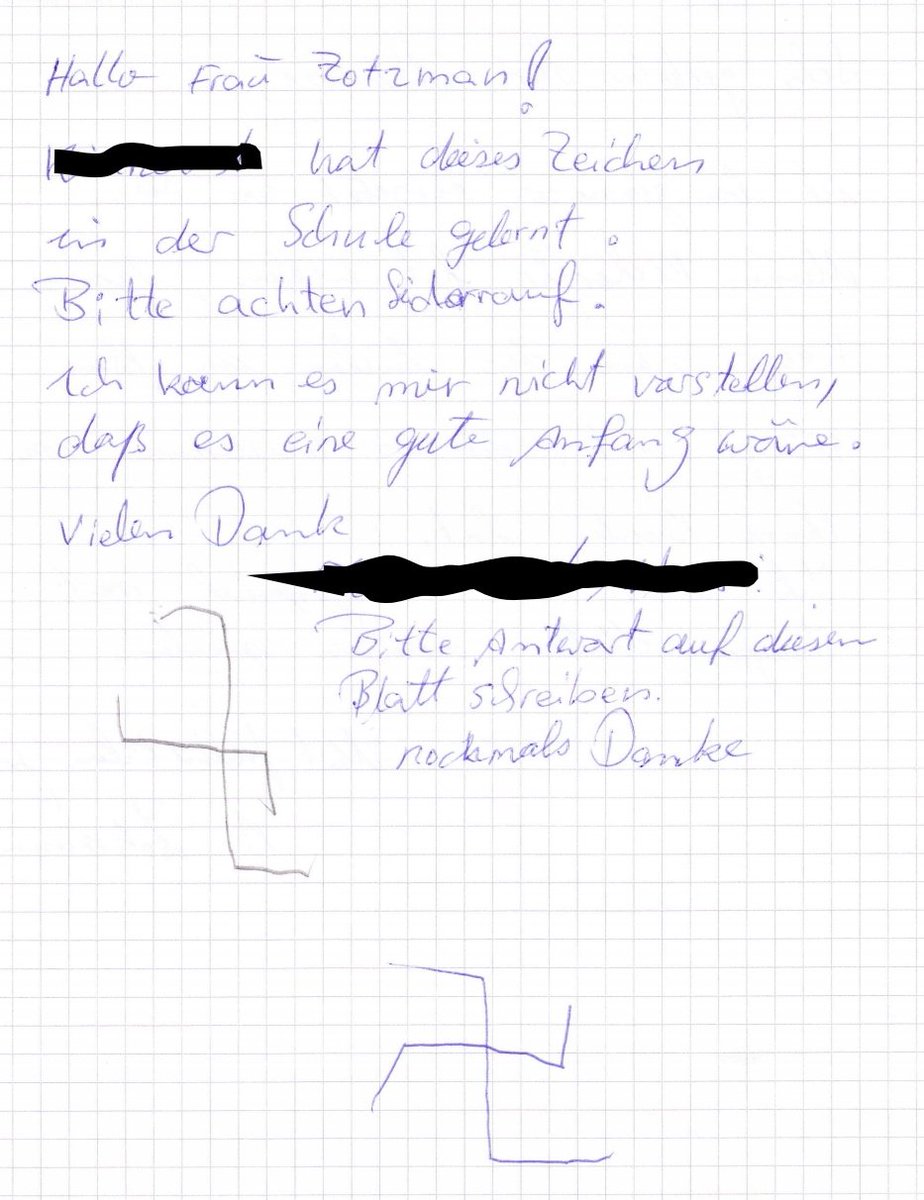 Hallo Frau Zotzman!
hat dieses Zeichen
in der Schule gelernt.
Bitte achten Sie darauf.
Ich kann es mir nicht vorstellen,
daß es eine gute Anfang wäre.
Vielen Dank
Bitte Antwort auf diesen
Blatt schreiben.
nochmals Danke